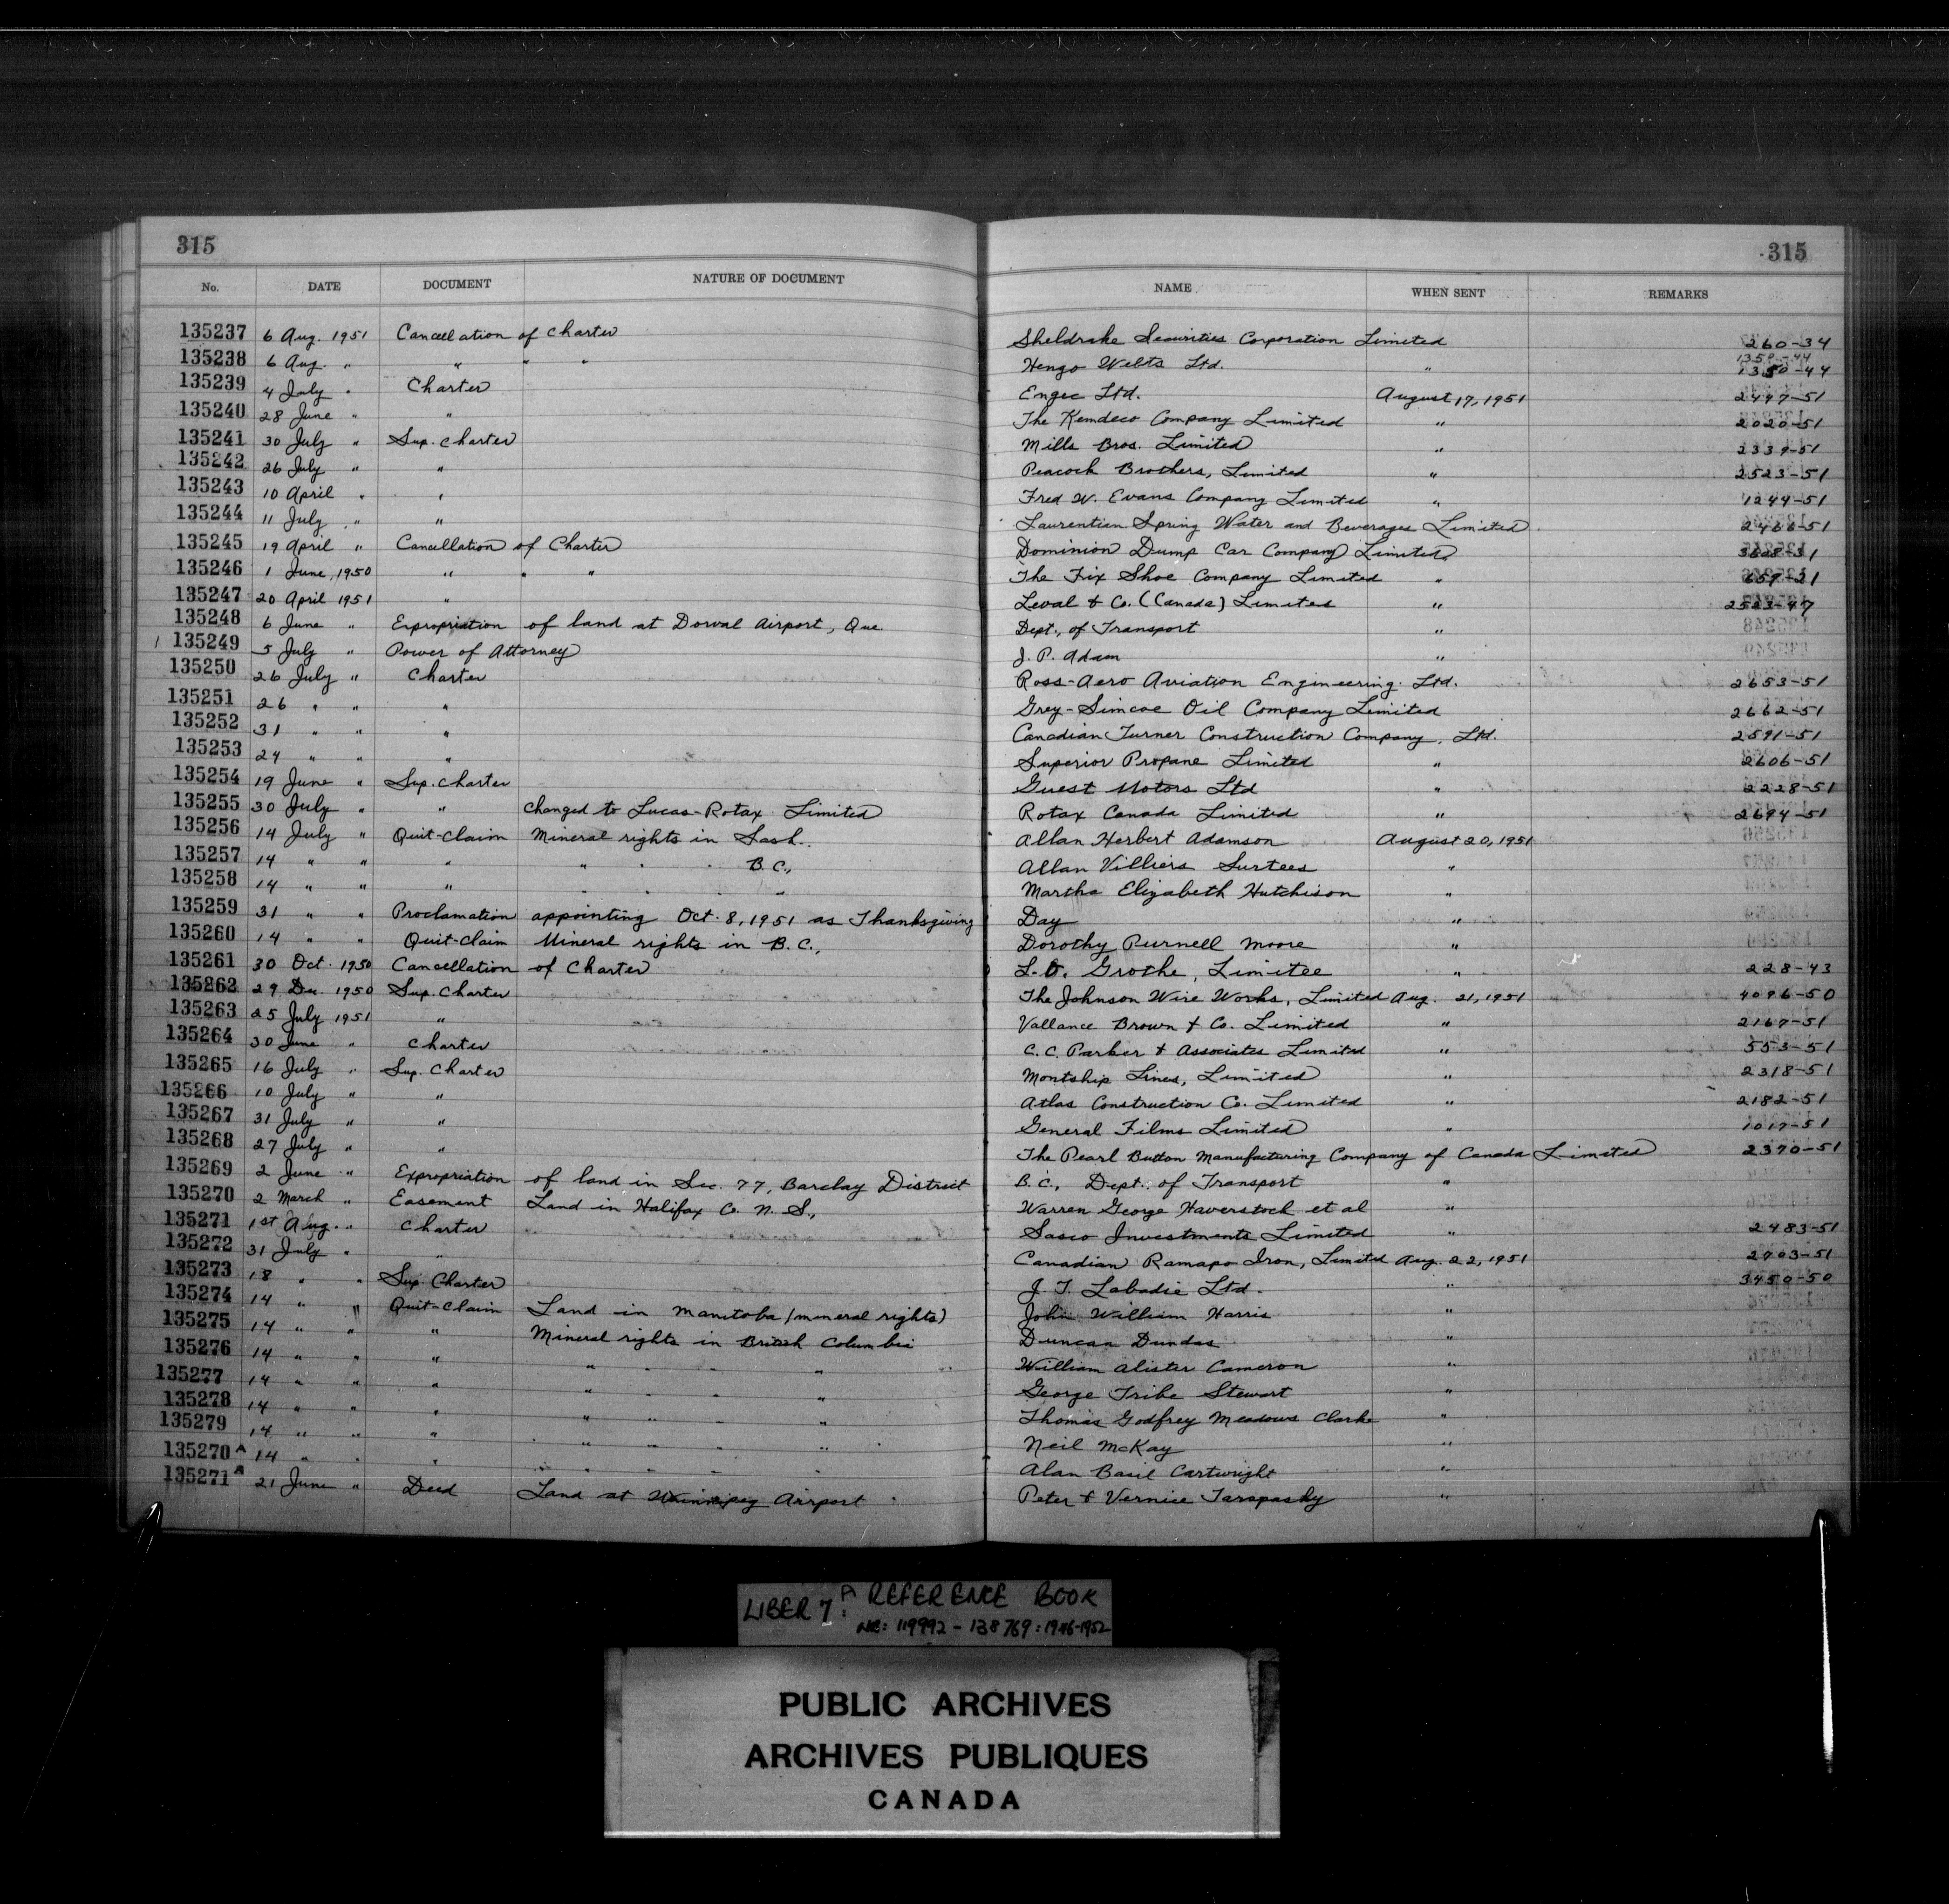 315 315
No. DATE DOCUMENT NATURE OF DOCUMENT NAME WHEN SENT REMARKS
135237 6 Aug. 1951 Cancellation of Charter Sheldrake Securities Corporation Limited 260-34
135238 6 Aug. " " " " Hengo Welts Ltd. " 1350-44 1350-44
135239 4 July " Charter Engec Ltd. August 17, 1951 2447-51
135240 28 June " " The Kemdeco Company Limited " 2020-51
135241 30 July " Sup. Charter Mills Bros. Limited " 2339-51
135242 26 July " " Peacock Brothers, Limited " 2523-51
135243 10 April " " Fred W. Evans Company Limited " 1244-51
135244 11 July " " Laurentian Spring Water and Beverages Limited 2466-51
135245 19 April " Cancellation of Charter Dominion Dump Car Company Limited 3608-31
135246 1 June, 1950 " " " The Fix Shoe Company Limited " 659-21
135247 20 April 1951 " Leval & Co. (Canada) Limited " 2523-47
135248 6 June " Expropriation of land at Dorval Airport, Que Dept., of Transport "
135249 5 July " Power of Attorney J. P. Adam "
135250 26 July " Charter Ross-Aero Aviation Engineering Ltd. 2653-51
135251 26 " " " Grey-Simcoe Oil Company Limited 2662-51
135252 31 " " " Canadian Turner Construction Company, Ltd. 2591-51
135253 24 " " " Superior Propane Limited " 2606-51
135254 19 June " Sup. Charter Guest Motors Ltd " 2228-51
135255 30 July " " Changed to Lucas-Rotax Limited Rotax Canada Limited " 2694-51
135256 14 July " Quit-Claim Mineral rights in Sask.. Allan Herbert Adamson August 20, 1951
135257 14 " " " " " B.C., Allan Villiers Surtees "
135258 14 " " " " " " Martha Elizabeth Hutchison "
135259 31 " " Proclamation appointing Oct. 8, 1951 as Thanksgiving Day "
135260 14 " " Quit-Claim Mineral rights in B.C., Dorothy Purnell Moore "
135261 30 Oct. 1950 Cancellation of Charter L.O. Grothe, Limitee " 228-43
135262 29 Dec. 1950 Sup. Charter The Johnson Wire Works, Limited Aug. 21, 1951 4096-50
135263 25 July 1951 " Vallance Brown & Co. Limited " 2167-51
135264 30 June " Charter C. C. Parker & Associates Limited " 553-51
135265 16 July " Sup. Charter Montship Lines, Limited " 2318-51
135266 10 July " " Atlas Construction Co. Limited " 2182-51
135267 31 July " " General Films Limited " 1017-51
135268 27 July " " The Pearl Button Manufacturing Company of Canada Limited 2370-51
135269 2 June " Expropriation of land in Sec. 77, Barclay District B.C., Dept. of Transport "
135270 2 March " Easement Land in Halifax Co. N. S., Warren George Haverstock et al "
135271 1st Aug. " Charter Sasco Investments Limited " 2483-51
135272 31 July " " Canadian Ramapo Iron, Limited Aug. 22, 1951 2703-51
135273 18 " " Sup. Charter J. T. Labadie Ltd. " 3450-50
135274 14 " " Quit-Claim Land in Manitoba (mineral rights) John William Harris "
135275 14 " " " Mineral rights in British Columbia Duncan Dundas "
135276 14 " " " " " " William Alister Cameron "
135277 14 " " " " " " " George Tribe Stewart "
135278 14 " " " " " " " Thomas Godfrey Meadows Clarke "
135279 14 " " " " " " " Neil McKay "
135270A 14 " " " " " " " Alan Basil Cartwright "
135271A 21 June " Deed Land at Winnipeg Airport Peter & Vernice Tarapasky "
LIBER 7A: REFERENCE BOOK
NOS: 119992 - 138769: 1946-1952
PUBLIC ARCHIVES
ARCHIVES PUBLIQUES
CANADA